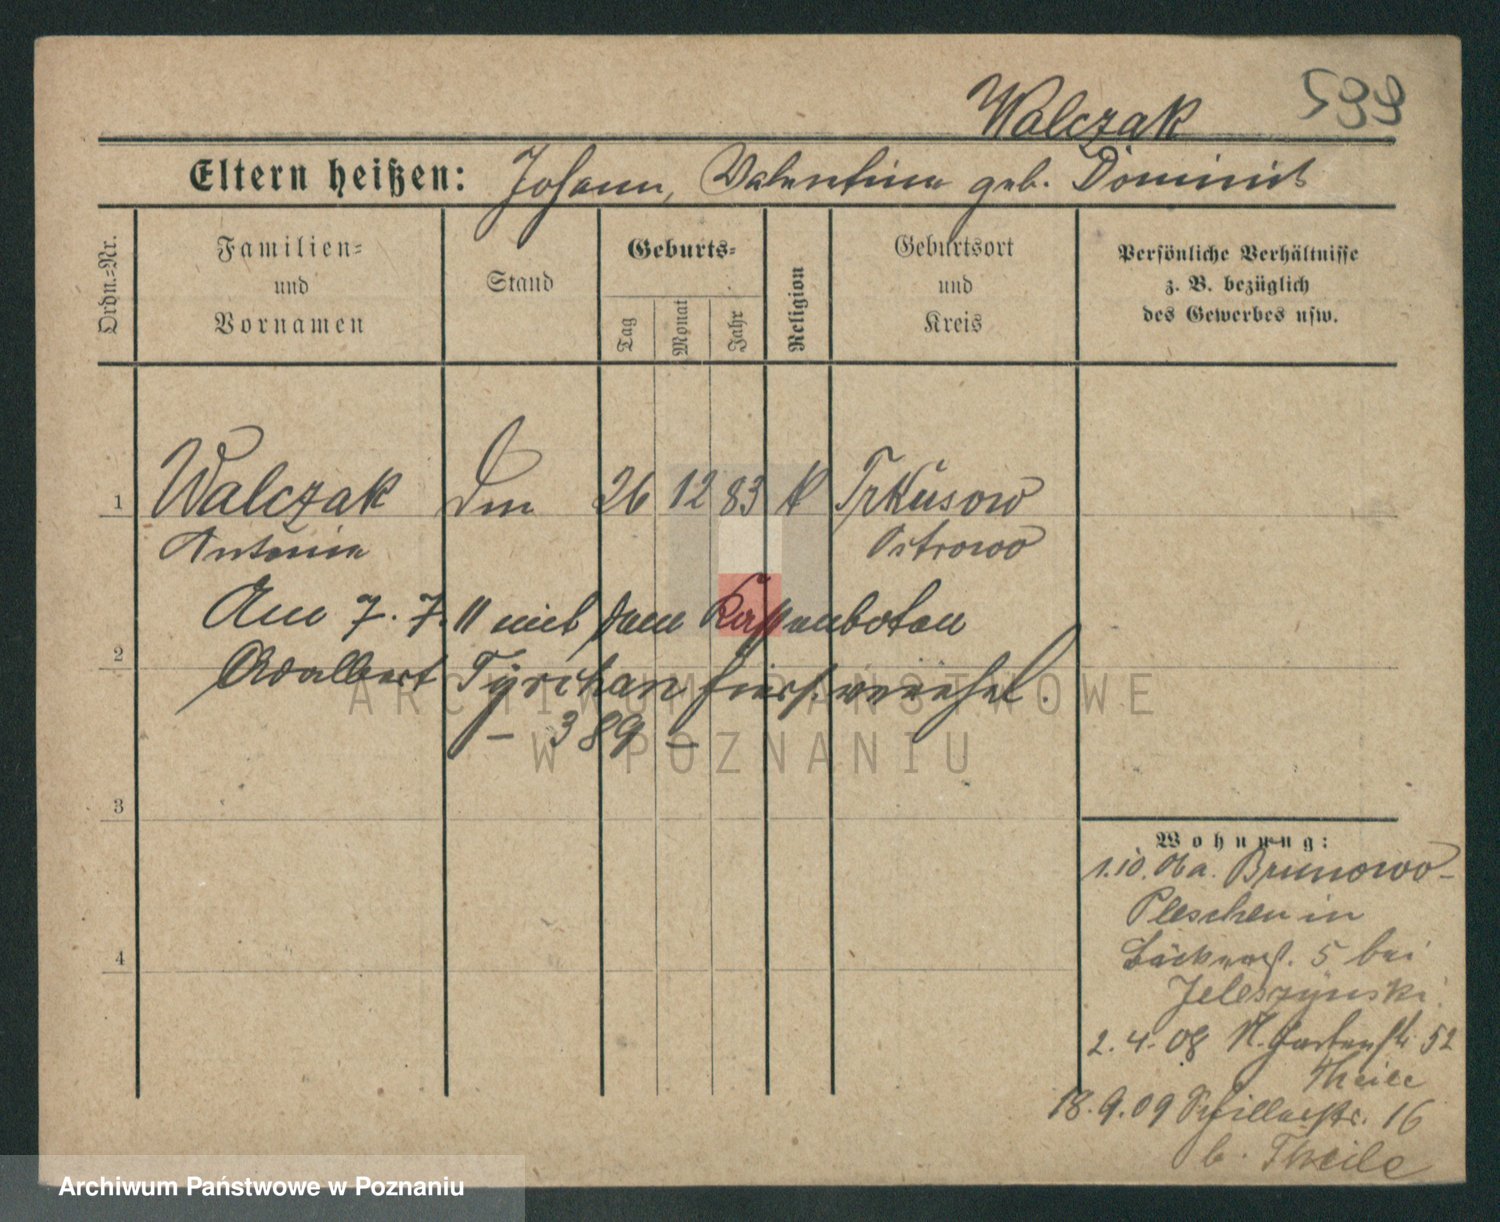 599
Walczak
Eltern heißen: Johann, Valentina geb. Dominik
Ordn.-Nr.
Familien-
und
Vornamen
Stand
Geburts-
Tag
Monat
Jahr
Religion
Geburtsort
und
Kreis
Persönliche Verhältnisse
z. B. bezüglich
des Gewerbes usw.
1 Walczak 26 12 83 k Trkusow
Antonia Ostrowo
Am 7. 7. 11 mit dem Kassenboten
2 Adalbert Tyrchan hiers. verehel.
- 389 -
3
4
Wohnung:
1.10.06 a. Brunowo-
Pleschen in
Bäckerst. 5 bei
Jeleszynski
2.4.08 N. Gartenstr. 52
Theile
18.9.09 Schillerstr. 16
b. Theile
ARCHIWUM PAŃSTWOWE
W POZNANIU
Archiwum Państwowe w Poznaniu